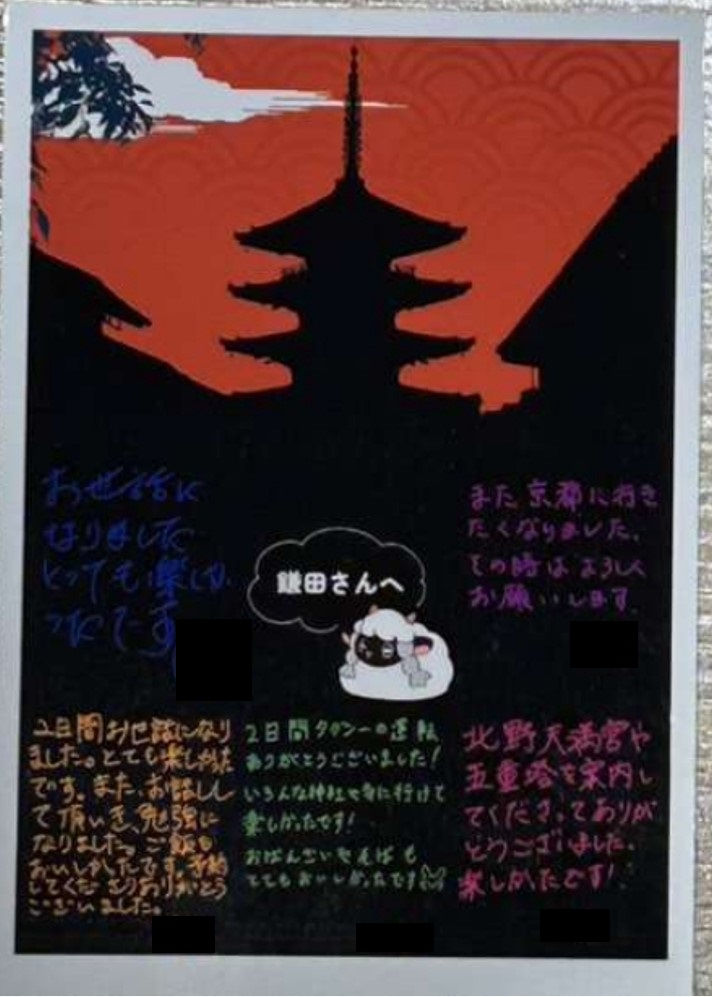 お世話に
なりました
とっても楽しか
ったです
鎌田さんへ
また京都に行き
たくなりました。
その時はよろしく
お願いします
2日間お世話になり
ました。とても楽しかった
です。また、お話しし
て頂いき、勉強に
なりました。ご飯も
おいしかったです。予約
してくださりありがとう
ございました。
2日間タクシーの運転
ありがとうございました!
いろんな神社や寺に行けて
楽しかったです!
おばんざいやそばも
とてもおいしかったです
北野天満宮や
五重塔を案内し
てくださってありが
とうございました。
楽しかたです!